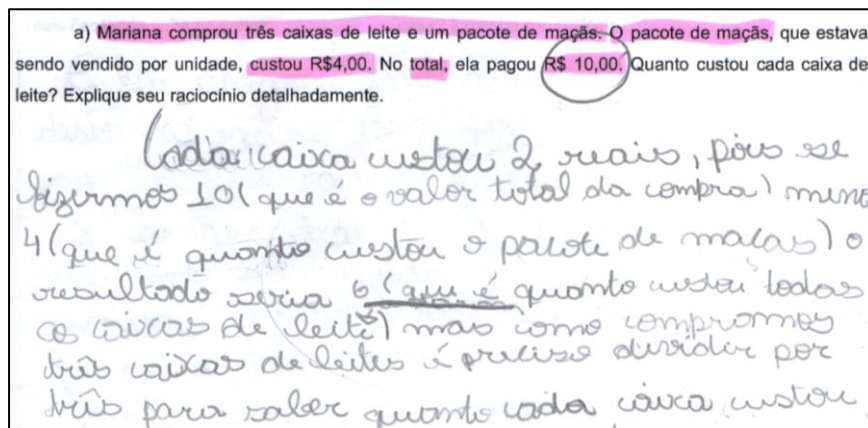 a) Mariana comprou três caixas de leite e um pacote de maçãs. O pacote de maçãs, que estava
sendo vendido por unidade, custou R$4,00. No total, ela pagou R$ 10,00. Quanto custou cada caixa de
leite? Explique seu raciocínio detalhadamente.
Cada caixa custou 2 reais, pois se
fizermos 10 (que é o valor total da compra) menos
4 (que é quanto custou o pacote de macas) o
resultado seria 6 (que é quanto custou todas
as caixas de leite) mas como compramos
três caixas de leites é preciso dividir por
três para saber quanto cada caixa custou